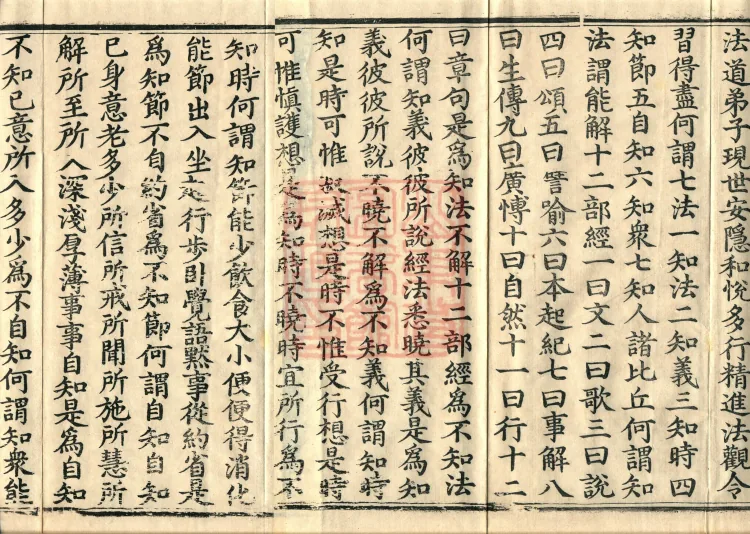 法道弟子現世安隱和悅多行精進法觀令
習得盡何謂七法一知法二知義三知時四
知節五自知六知衆七知人諸比丘何謂知
法謂能解十二部經一曰文二曰歌三曰說
四曰頌五曰譬喻六曰本起紀七曰事解八
曰生傳九曰廣博十曰自然十一曰行十二
曰章句是爲知法不解十二部經爲不知法
何謂知義彼彼所說經法悉曉其義是爲知
義彼彼所說不曉不解爲不知義何謂知時
知是時可惟寂滅想是時不惟受行想是時
可惟愼護想是爲知時不曉時宜所行爲不
知時何謂知節能少飲食大小便便得消化
能節出入坐走行步卧覺語默事從約省是
爲知節不自約省爲不知節何謂自知自知
已身意老多少所信所戒所聞所施所慧所
解所至所入深淺厚薄事事自知是爲自知
不知已意所入多少爲不自知何謂知衆能